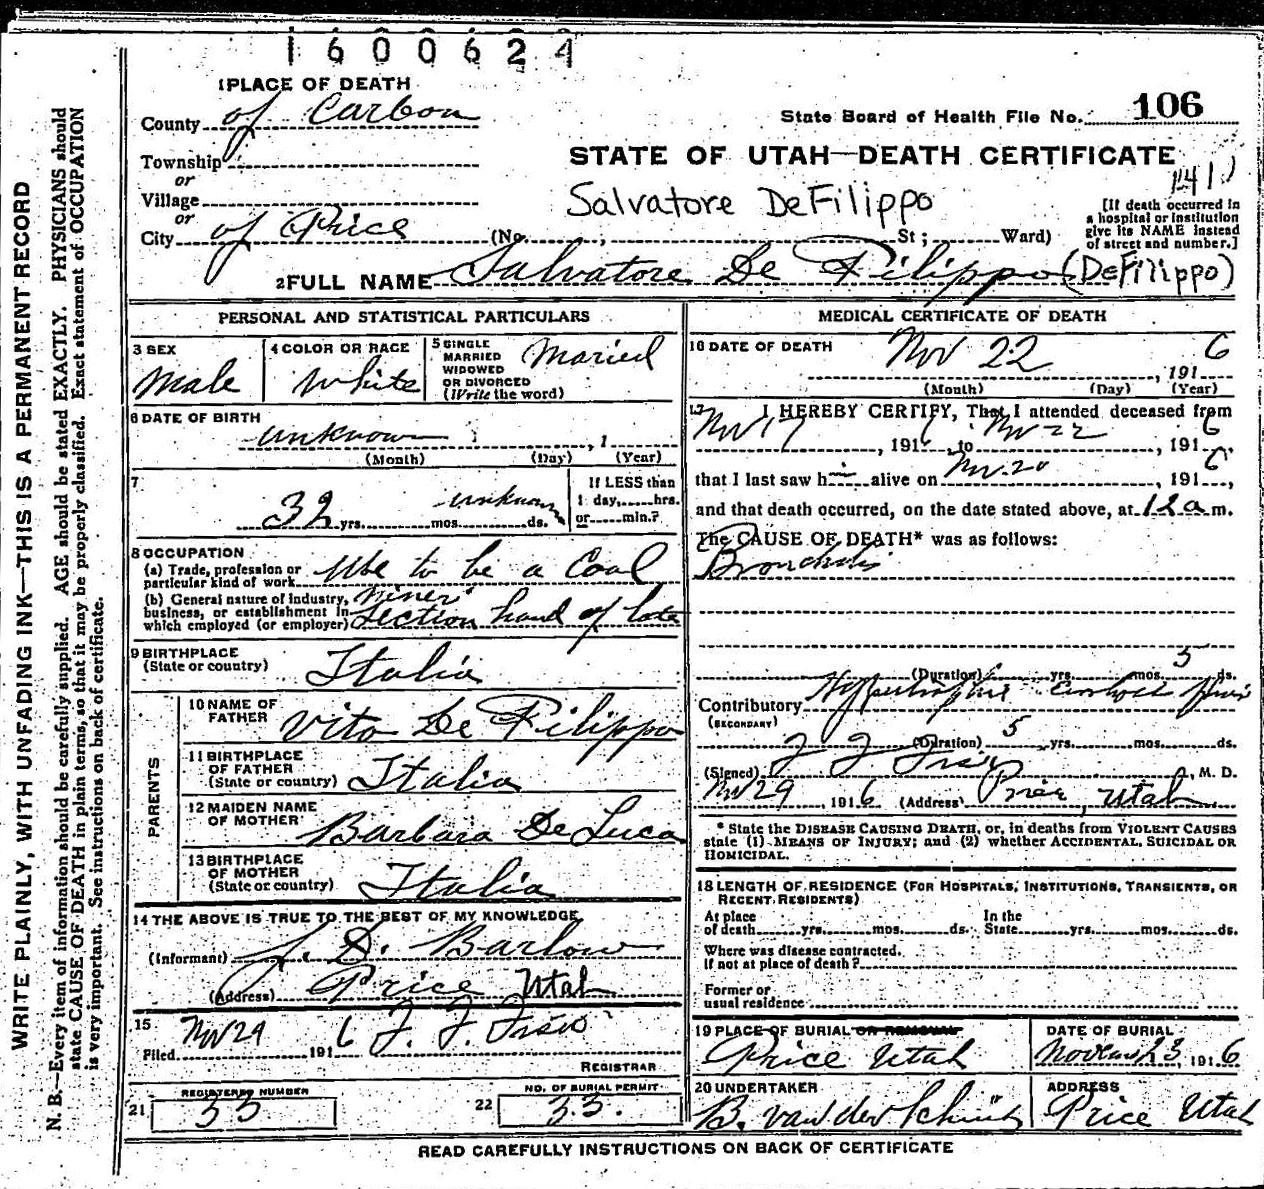 1600624
1 PLACE OF DEATH
County of Carbon
State Board of Health File No. 106
Township
or
Village
or
City of Price
STATE OF UTAH—DEATH CERTIFICATE
Salvatore DeFilippo
(No. , St ; Ward)
[If death occurred in
a hospital or institution
give its NAME instead
of street and number.]
2 FULL NAME Salvatore De Filippo (DeFilippo)
PERSONAL AND STATISTICAL PARTICULARS
3 SEX
Male
4 COLOR OR RACE
White
5 SINGLE
MARRIED
WIDOWED
OR DIVORCED
(Write the word)
Maried
6 DATE OF BIRTH
unknown , 1
(Month) (Day) (Year)
7
32 yrs. mos. ds. unknown
If LESS than
1 day, hrs.
or min.?
8 OCCUPATION
(a) Trade, profession or
particular kind of work Use to be a Coal
miner
(b) General nature of industry,
business, or establishment in
which employed (or employer) Section hand of late
9 BIRTHPLACE
(State or country) Italia
PARENTS
10 NAME OF
FATHER Vito De Filippo
11 BIRTHPLACE
OF FATHER
(State or country) Italia
12 MAIDEN NAME
OF MOTHER Barbara De Luca
13 BIRTHPLACE
OF MOTHER
(State or country) Italia
14 THE ABOVE IS TRUE TO THE BEST OF MY KNOWLEDGE
(Informant) J. D. Barlow
(Address) Price Utah
15
Filed Nov 29 191 6 F. F.
REGISTRAR
21 REGISTERED NUMBER
33
22 NO. OF BURIAL PERMIT
33.
MEDICAL CERTIFICATE OF DEATH
16 DATE OF DEATH Nov 22 , 191 6
(Month) (Day) (Year)
17 I HEREBY CERTIFY, That I attended deceased from
Nov 17 , 191 6 to Nov 22 , 191 6,
that I last saw him alive on Nov 20 , 191 6,
and that death occurred, on the date stated above, at 12 a m.
The CAUSE OF DEATH* was as follows:
Bronchitis
(Duration) yrs. mos. 5 ds.
Contributory
(SECONDARY)
(Duration) 5 yrs. mos. ds.
(Signed) F F , M. D.
Nov 29 , 191 6 (Address) Price, Utah
* State the DISEASE CAUSING DEATH, or, in deaths from VIOLENT CAUSES
state (1) MEANS OF INJURY; and (2) whether ACCIDENTAL, SUICIDAL OR
HOMICIDAL.
18 LENGTH OF RESIDENCE (FOR HOSPITALS, INSTITUTIONS, TRANSIENTS, OR
RECENT RESIDENTS)
At place
of death yrs. mos. ds. In the
State yrs. mos. ds.
Where was disease contracted.
If not at place of death?
Former or
usual residence
19 PLACE OF BURIAL OR REMOVAL
Price Utah
DATE OF BURIAL
23, 191 6
20 UNDERTAKER
B. van der
ADDRESS
Price Utah
READ CAREFULLY INSTRUCTIONS ON BACK OF CERTIFICATE
WRITE PLAINLY, WITH UNFADING INK—THIS IS A PERMANENT RECORD
N. B.—Every item of information should be carefully supplied. AGE should be stated EXACTLY. PHYSICIANS should
state CAUSE OF DEATH in plain terms, so that it may be properly classified. Exact statement of OCCUPATION
is very important. See instructions on back of certificate.